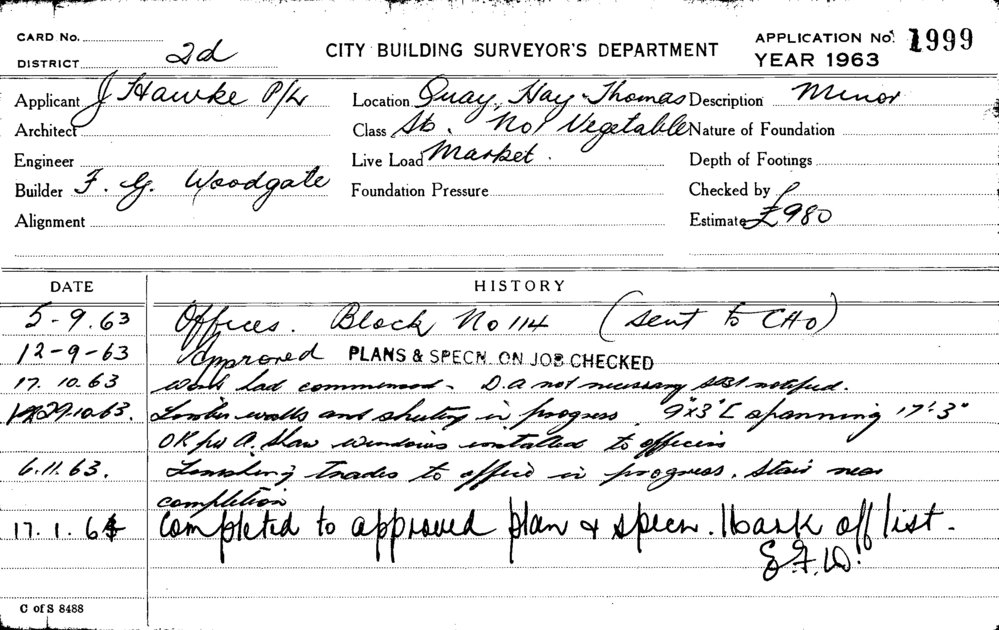 CARD No.
DISTRICT 2d
CITY BUILDING SURVEYOR'S DEPARTMENT
APPLICATION No. 1999
YEAR 1963
Applicant J Hawke P/L
Location Quay, Hay - Thomas
Description Minor
Architect
Class Sts. No 1 Vegetable
Nature of Foundation
Engineer
Live Load Market.
Depth of Footings
Builder F. G. Woodgate
Foundation Pressure
Checked by
Alignment
Estimate £980
DATE HISTORY
5-9.63 Offices. Block No 114 (sent to CHO)
12-9-63 Approved PLANS & SPECN. ON JOB CHECKED
17.10.63 work had commenced - D.A not necessary notified.
29.10.63. Timber walls and sheeting in progress. 9"x3" [ spanning 17'-3"
OK per A. Shaw windows installed to offices
6.11.63. Finishing trades to office in progress. Stair near
completion
17.1.64 Completed to approved plan & specn. Mark off list.
C of S 8488